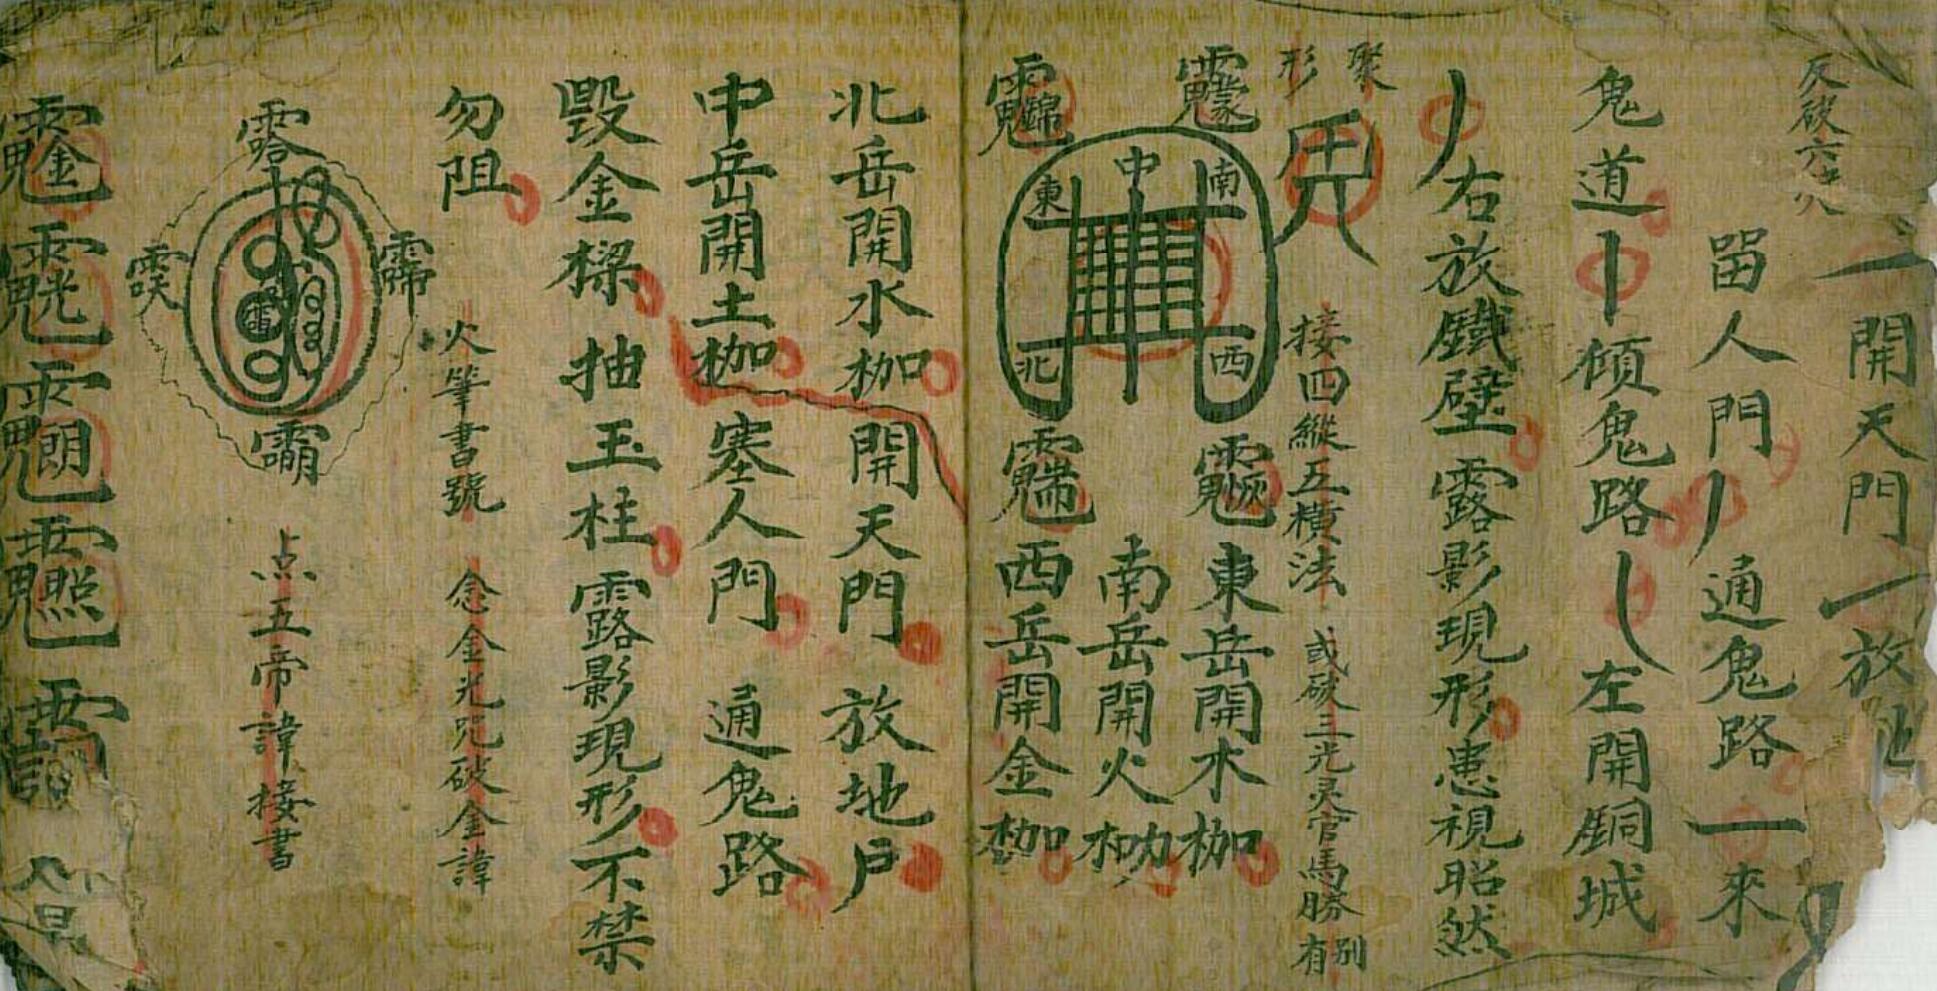 反破六
一開天門一放地
留人門丿通鬼路一來
鬼道丨傾鬼路乀左開銅城
丿右放鐵壁露影現形患視昭然
聚形
接四縱五橫法 或破三光灵官馬勝 有别
中
東
南
北
西
東岳開水枷
南岳開火枷
西岳開金枷
北岳開水枷開天門放地户
中岳開土枷塞人門通鬼路
毀金樑抽玉柱露影現形不禁
勿阻
火筆書號 念金光咒破金諱
点五帝諱接書